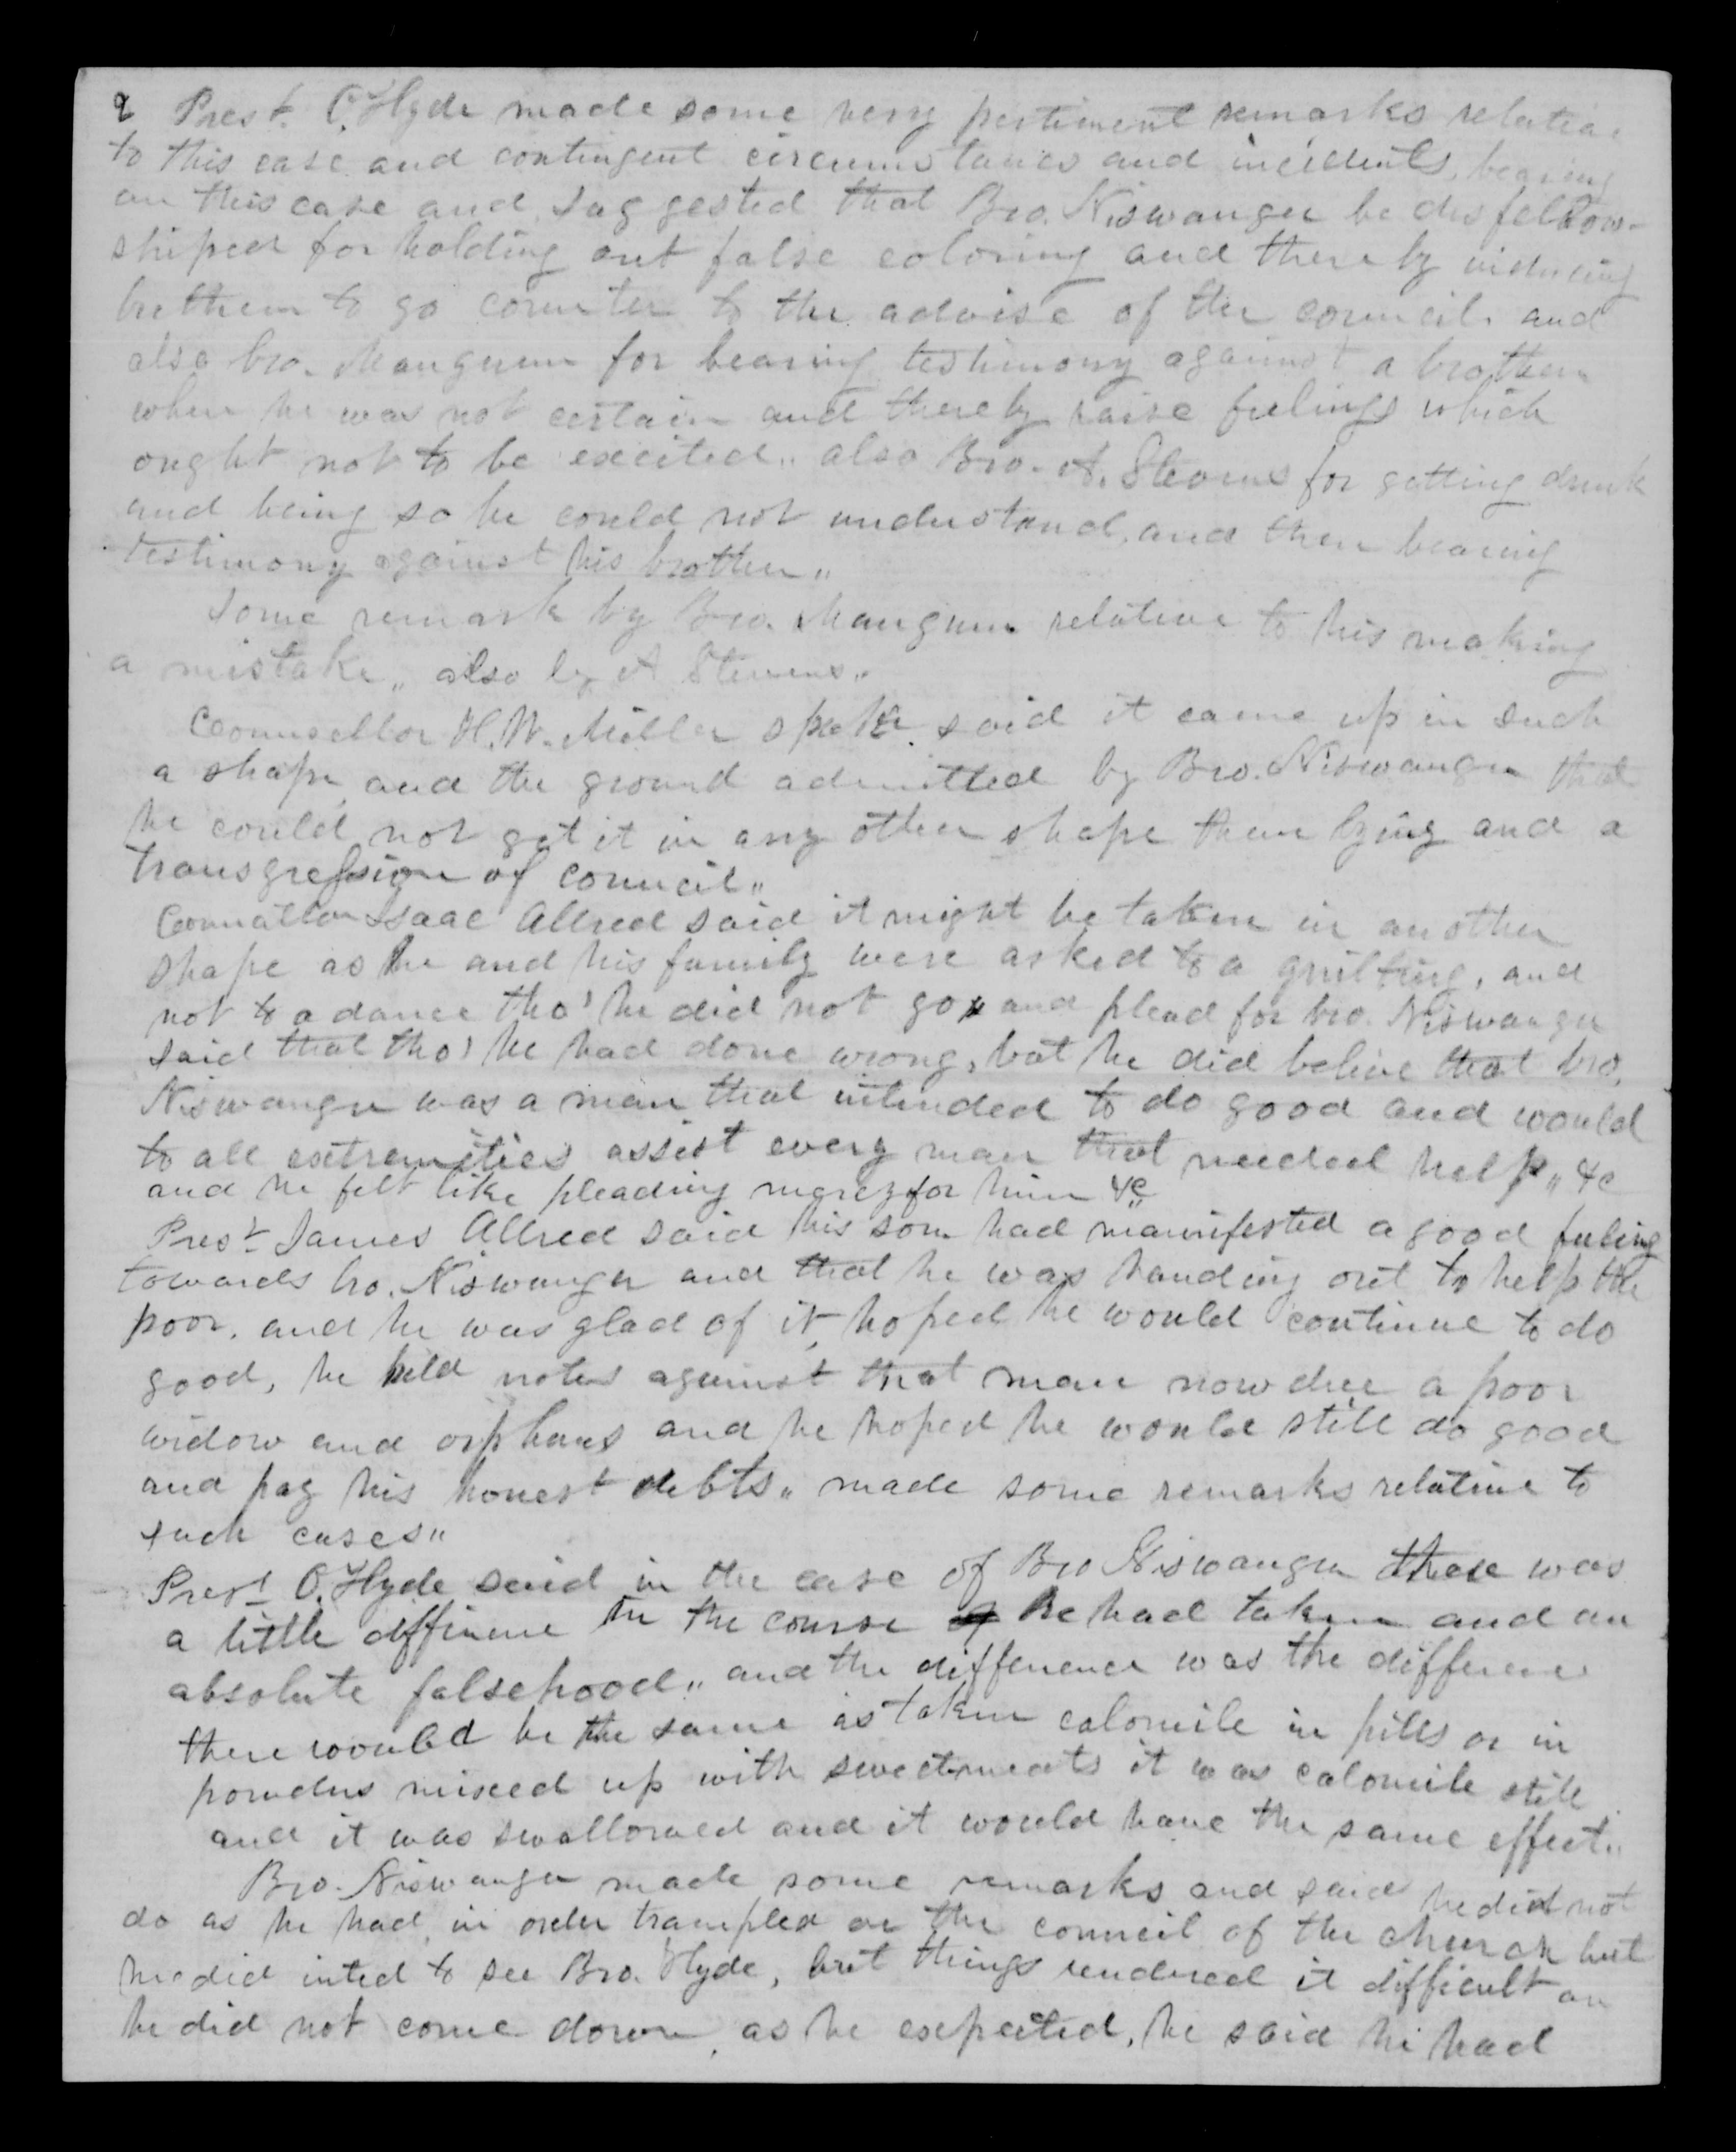 2 Prest. O. Hyde made some very pertinent remarks relative
to this case and contingent circumstances and incidents, bearing
on this case and suggested that Bro. Niswanger be disfellow-
shiped for holding out false coloring and thereby inducing
brethern to go counter to the advise of the council. and
also bro. Mangum for bearing testimony against a brother
when he was not certain and thereby raise feelings which
ought not to be excited,, also Bro. A. Stevens for getting drunk
and being so he could not understand, and then bearing
testimony against his brother,,
Some remark by Bro. Mangum relative to his making
a mistake,, also by A Stevens,,
Counsellor H. W. Miller spoke said it came up in such
a shape, and the ground admitted by Bro. Niswanger that
he could not get it in any other shape than lying and a
transgression of council,,
Isaac Allred said it might be taken in another
shape as he and his family were asked to a quilting, and
not to a dance tho' he did not go, and plead for bro. Niswanger
said that tho' he had done wrong, but he did believe that bro.
Niswanger was a man that intended to do good and would
to all extremities assist every man that needed help,, &c
and he felt like pleading mercy for him &c
Prest James Allred said his son had manifested a good feeling
towards bro. Niswanger and that he was handing out to help the
poor, and he was glad of it, hoped he would continue to do
good, he held notes against that man now due a poor
widow and orphans and he hoped he would still do good
and pay his honest debts,, made some remarks relative to
such cases,,
Prest O. Hyde said in the case of Bro Niswanger there was
a little differene in the course of he had taken and an
absolute falsehood,, and the difference was the difference
there would be the same as taken calomile in pills or in
powders mixed up with sweetmeats it was calomile still
and it was swallowed and it would have the same effect,,
Bro. Niswanger made some remarks and said he did not
do as he had, in order trampled on the council of the church but
he did inted to see Bro. Hyde, but things rendered it difficult an
he did not come down, as he expected, he said he had